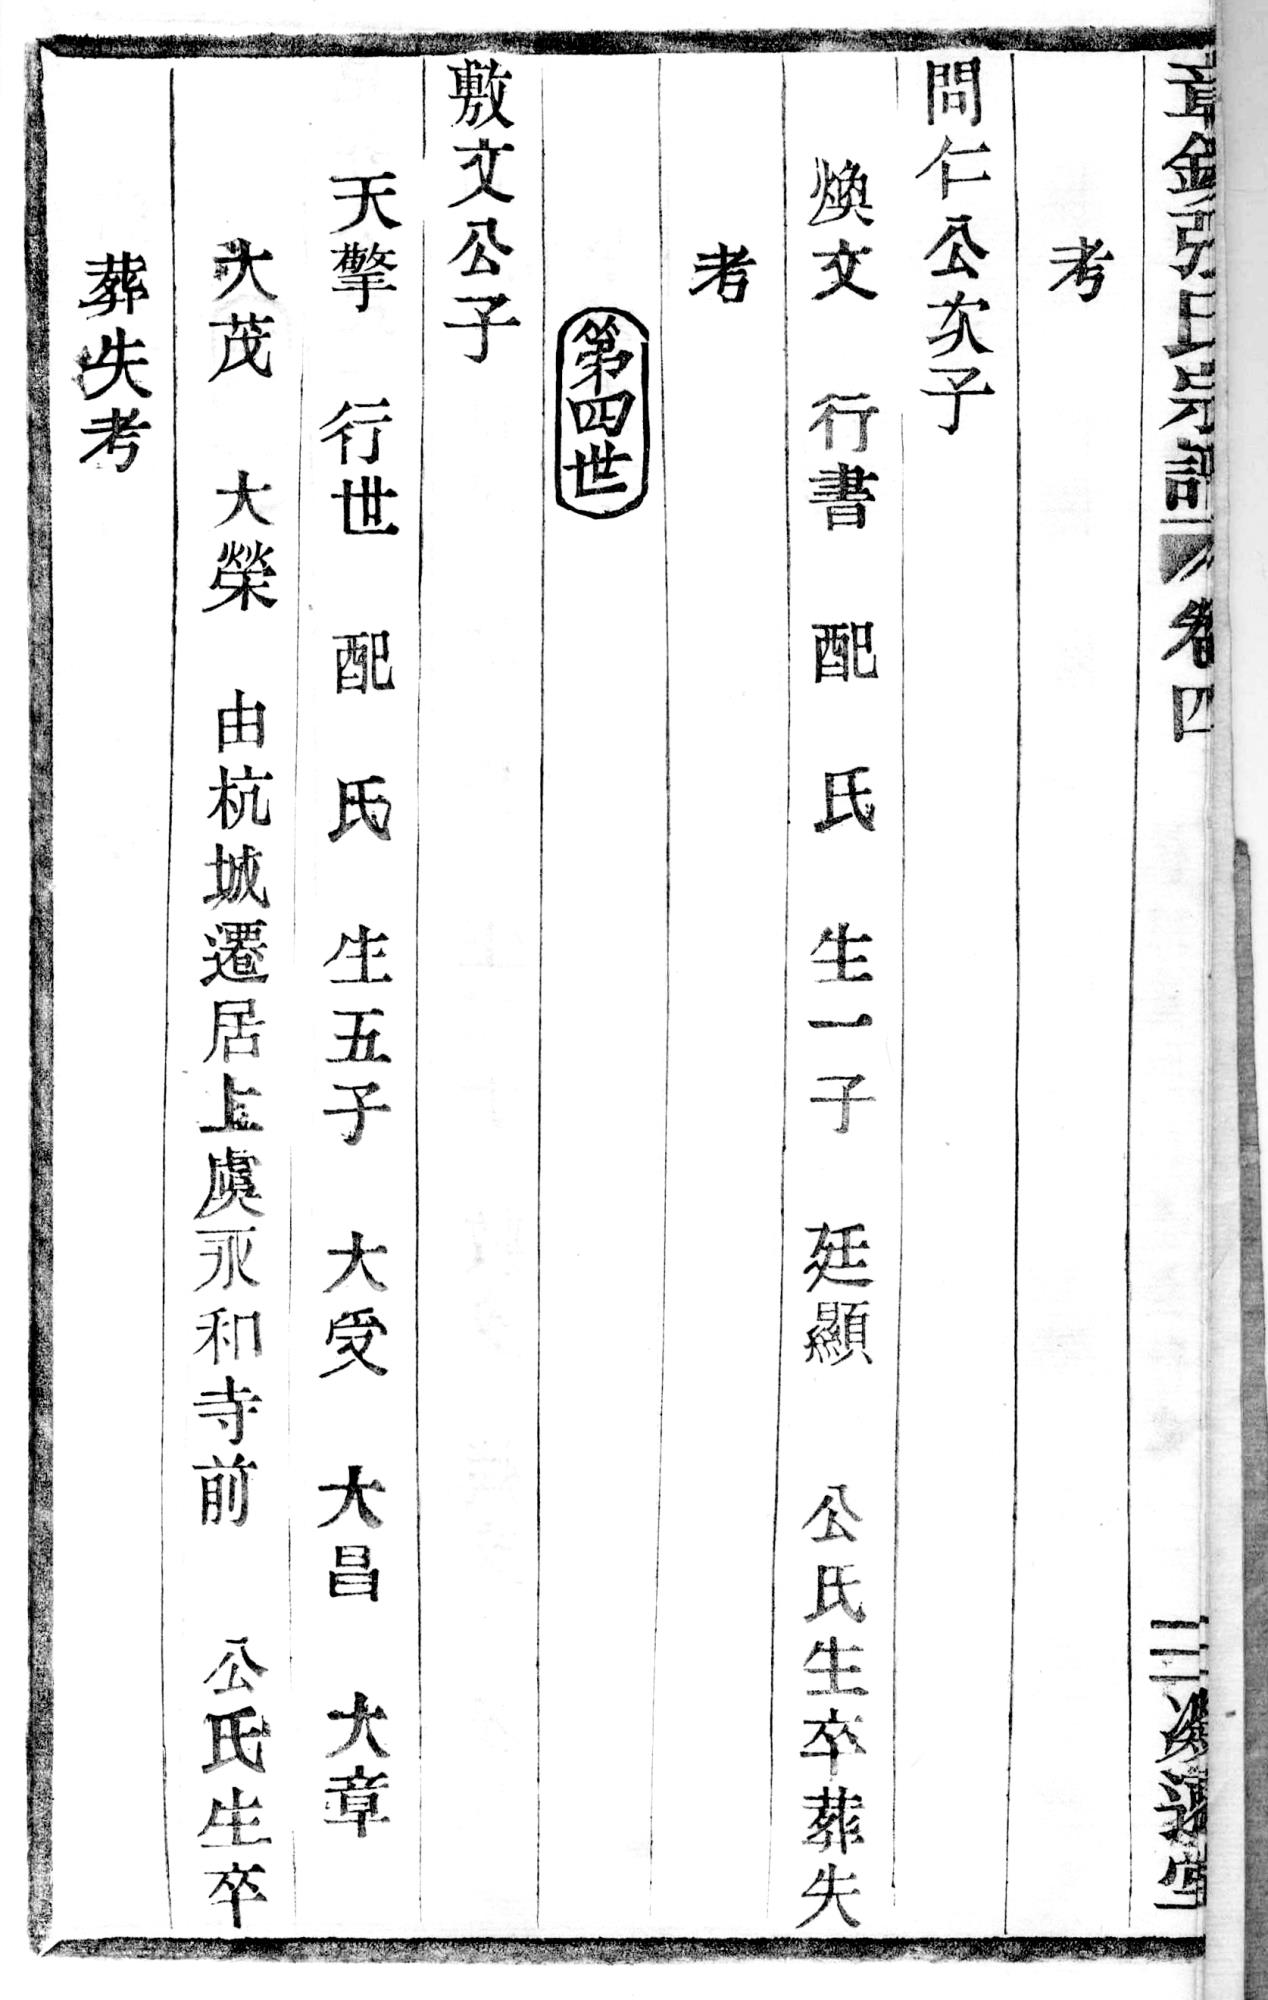 章鎮張氏宗譜 卷四 三 遺堂
考
問仁公次子
煥文 行書 配 氏 生一子 廷顯 公氏生卒葬失
考
第四世
敷文公子
天擎 行世 配 氏 生五子 大受 大昌 大章
大茂 大榮 由杭城遷居上虞永和寺前 公氏生卒
葬失考